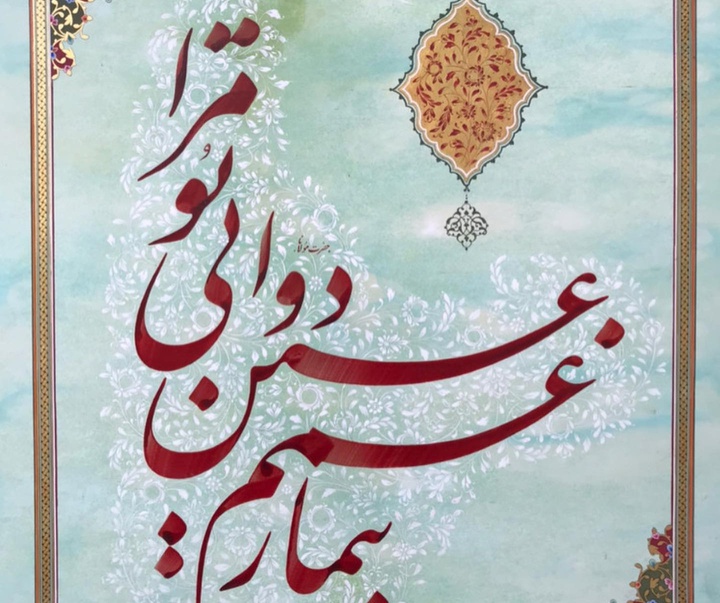 بیمار
غمم
عین
دوایی
تو
مرا
حضرت مولانا